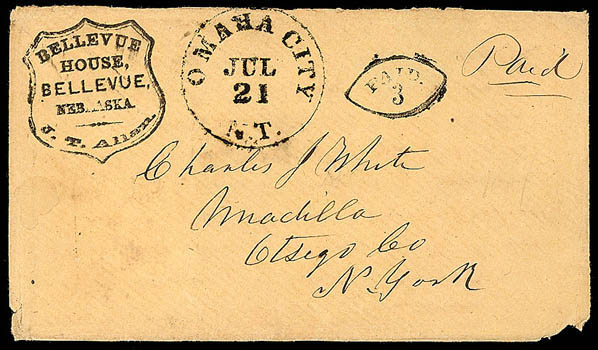 BELLEVUE
HOUSE,
BELLEVUE,
NEBRASKA.
J. T. Allan.
OMAHA CITY
JUL
21
N.T.
PAID.
3
Paid
Charles J White
Unadilla
Otsego Co
N. York